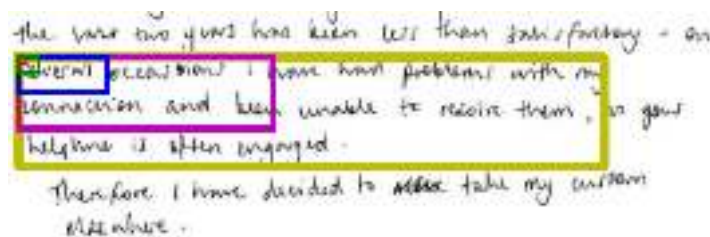 the last two years has been less than satisfactory - on
several occassions I have had problems with my
connection and been unable to resolve them, as your
helpline is often engaged.
Therefore I have decided to take my custom
elsewhere.